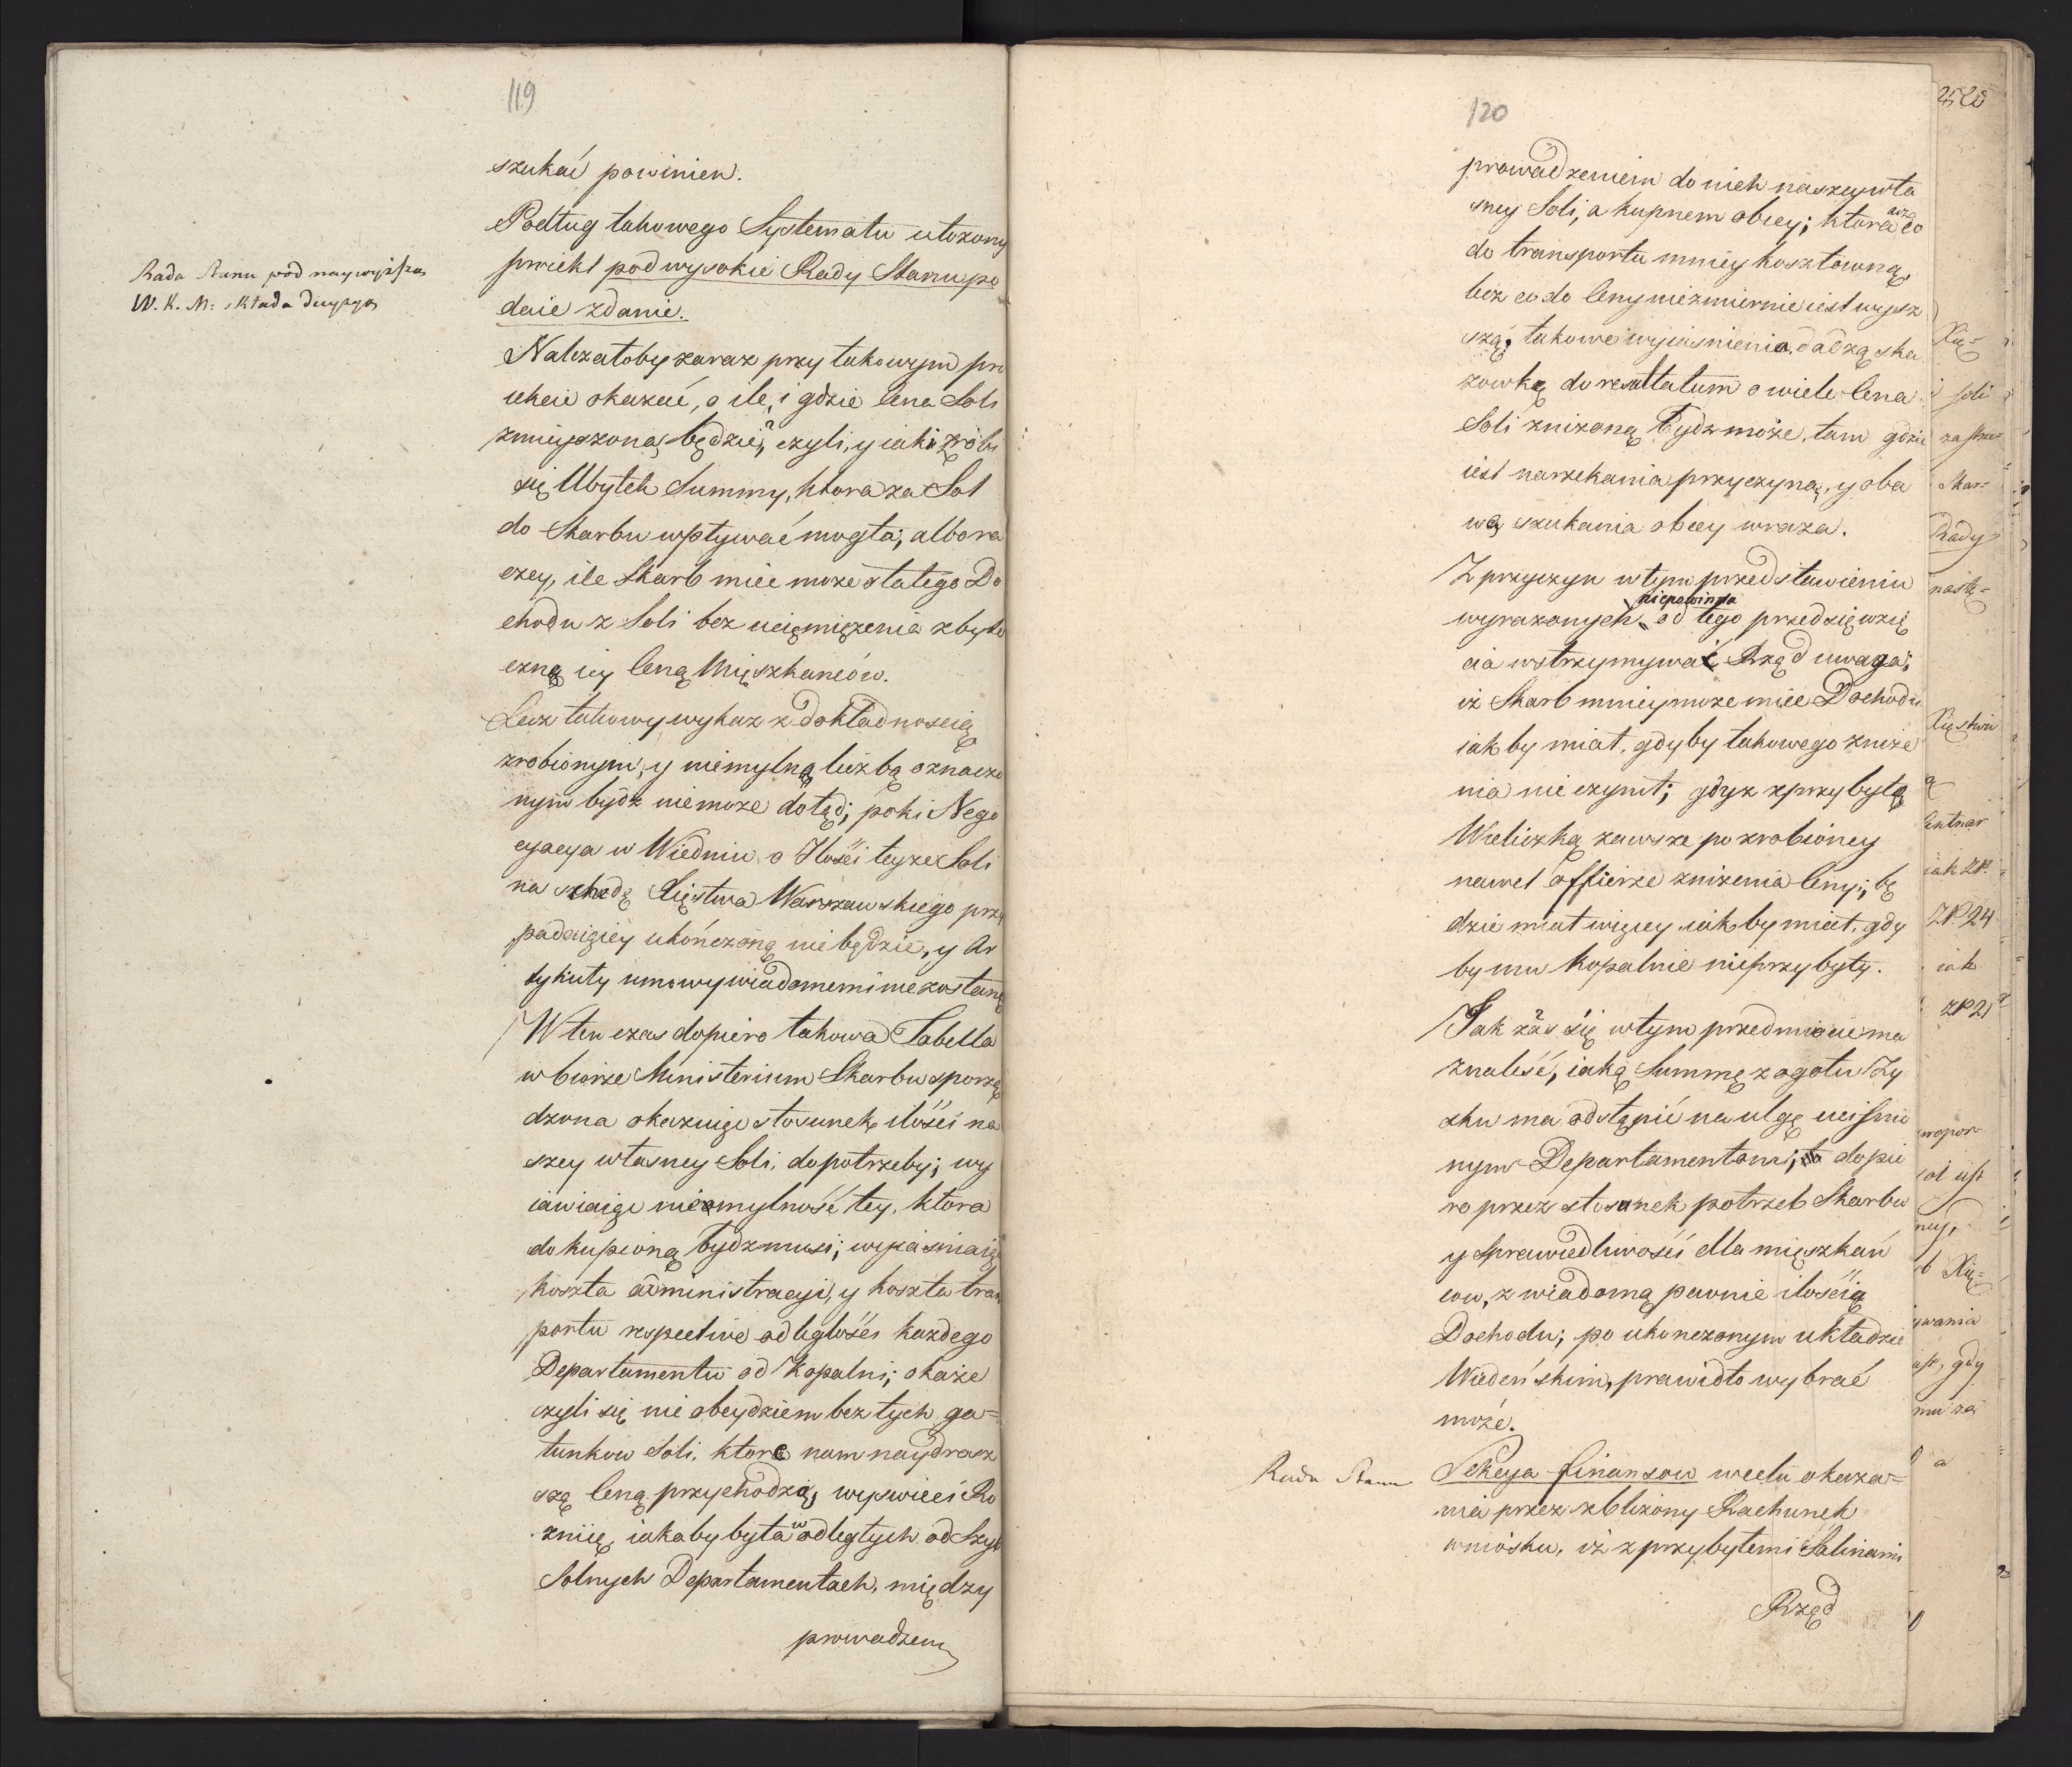 119
szukać powinien.
Podług takowego Systematu ułożony
proiekt pod wysokie Rady Stanu po
daie zdanie.
Rada Stanu pod naywyższą
W. K. M: składa decyzyą
Należałoby zaraz przy takowym pro
iekcie okazać, o ile, i gdzie Cena Soli
zmieyszoną będzie, czyli, y iaki zrobi
się Ubytek Summy, ktora za Sol
do Skarbu wpływać mogła; albo ra
czey, ile Skarb miec moze stałego Do
chodu z Soli bez ucięmiężenia zbyte
czną iey Ceną Mięszkancow.
Lecz takowy wykaz z dokładnoscią
zrobionym, y niemylną liczbą oznaczo
nym bydz niemoze dotąd; poki Nego
cyacya w Wiedniu o Ilości teyze Soli
na schedę Xięstwa Warszawskiego przy
padaiącey ukończoną nie będzie, y Ar
tykuły umowy wiadomemi nie zostaną
W ten czas dopiero takowa Tabella
w biorze Ministerium Skarbu sporzą
dzona okazuiąc stosunek ilości na
szey własney Soli, do potrzeby; wy
iawiaiąc nieomylność tey, ktora
dokupioną bydz musi; wyiasniaiąc
koszta administracyi, y koszta tran
portu respective odległości kazdego
Departamentu od Kopalni; okaże
czyli się nie obeydziem bez tych ga=
tunkow Soli, ktore nam naydrasz
szą Ceną przychodzą, wyswieci Ro
znicę, iakaby była w odległych od Szyb
Solnych Departamentach, między
prowadzem
120
prowadzeniem do nich naszey wła
sney Soli, a kupnem obcey; ktora acz co
do transportu mniey kosztowną,
lecz co do Ceny niezmiernie iest wysz
szą, takowe wyiasnienia, dadzą ska
zowkę do resultatum o wiele Cena
Soli zniżoną bydz może, tam gdzie
iest narzekania przyczyną, y oba
wę szukania obcey wraża.
Z przyczyn w tym przedstawieniu
wyrazonych niepowinna od tego przedsięwzię
cia wstrzymywać Rząd uwaga;
iż Skarb mniey moze miec Dochodu
iak by miał, gdyby takowego zniże
nia nie czynił; gdyz z przybyłą
Wieliczką zawsze po zrobioney
nawet offierze zniżenia Ceny; bę
dzie miał więcey, iak by miał, gdy
by mu kopalnie nieprzybyły.
Jak zaś się w tym przedmiocie ma
znalesć, iaką Summę z ogołu Zy
sku ma odstąpić na ulgę uciśnio
nym Departamentom; to dopie
ro przez stosunek potrzeb Skarbu
y Sprawiedliwości dla mięszkań
cow, z wiadomą pewnie ilością
Dochodu; po ukonczonym układzie
Wiedeńskim, prawidło wybrać
może.
Rada Stanu
Sekcya finansow w celu okaza=
nia przez zbliżony Rachunek
wniosku, iż z przybyłemi Salinami
Rząd
Xię=
soli
Skar=
Rady
nastę=
Xięstwa
Centnar
iak ZP.
ZP. 24
iak
ZP 21
propor=
Xię=
gdy
a